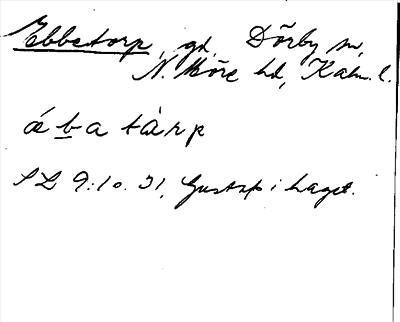 Ebbetorp, gd, Dörby sn,
N. Möre hd, Kalm. l.
ǽ b a tàrp
SL 9.10.31, Gustaf i haget.